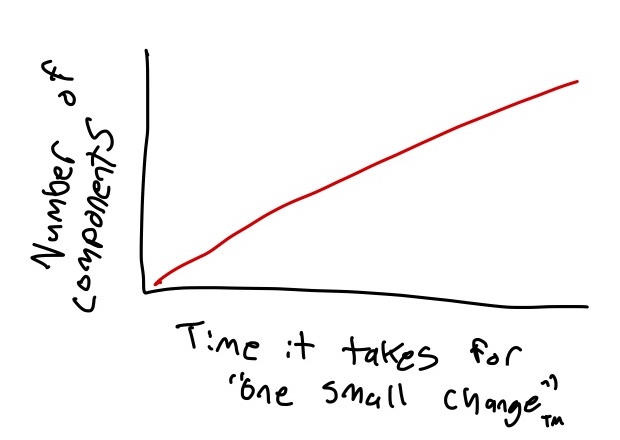 Number of
components
Time it takes for
"one small change"™